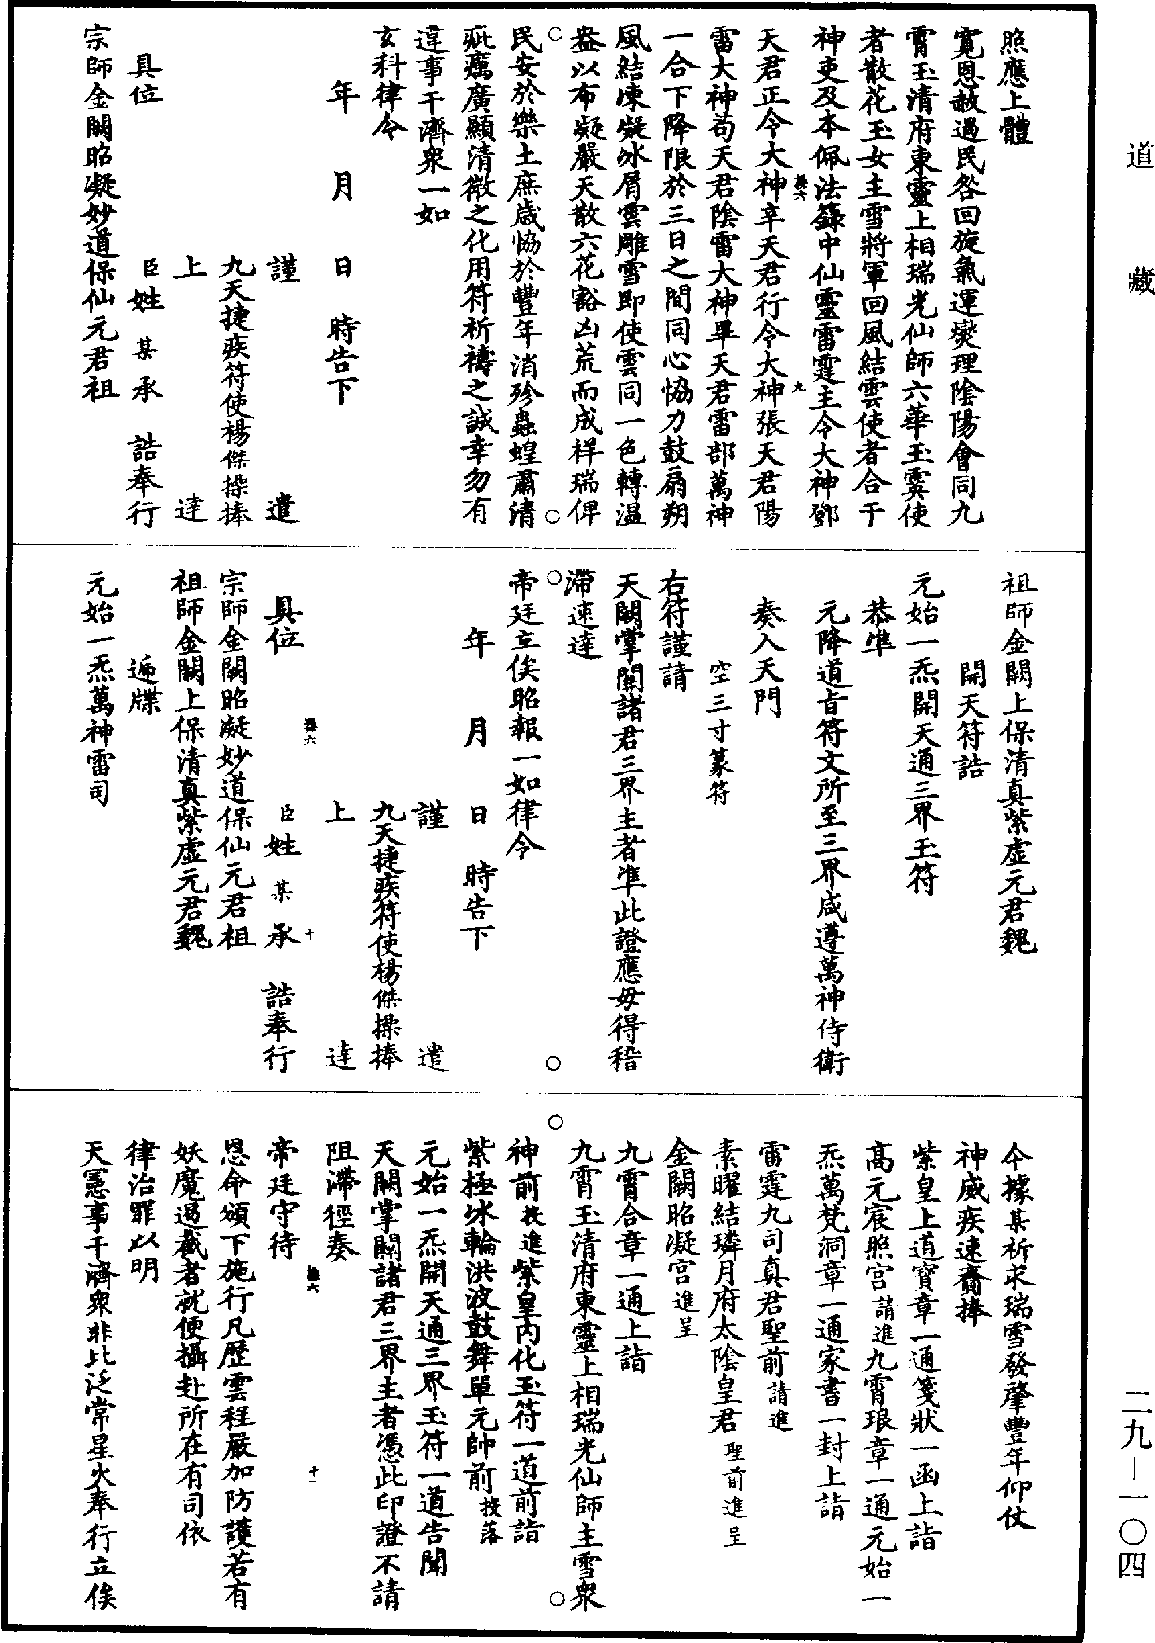 道藏
照應上體
寬恩赦過民咎回旋氣運燮理陰陽會同九
霄玉清府東靈上相瑞光仙師六華玉霙使
者散花玉女主雪將軍回風結雲使者合干
神吏及本佩法籙中仙靈雷霆主令大神鄧
天君正令大神辛天君行令大神張天君陽
雷大神苟天君陰雷大神畢天君雷部萬神
一合下降限於三日之間同心恊力鼓扇朔
風結凍凝冰屑雲雕雪即使雲同一色轉溫
盎以布凝嚴天散六花豁凶荒而成祥瑞俾
民安於樂土庶歲恊於豐年消殄蟲蝗肅清
疵癘廣顯清微之化用符祈禱之誠幸勿有
違事干濟衆一如
玄科律令
年 月 日 時告下
謹 遣
九天捷疾符使楊傑操捧
上 達
具位 臣姓某承 誥奉行
宗師金闕昭凝妙道保仙元君祖
祖師金闕上保清真紫虛元君魏
開天符誥
元始一炁開天通三界玉符
恭準
元降道旨符文所至三界咸遵萬神侍衛
奏入天門
空三寸篆符
右符謹請
天闕掌關諸君三界主者準此證應毋得稽
滯速達
帝廷立俟昭報一如律令
年 月 日 時告下
謹 遣
九天捷疾符使楊傑操捧
上 達
具位 臣姓某承 誥奉行
宗師金闕昭凝妙道保仙元君祖
祖師金闕上保清真紫虛元君魏
遍牒
元始一炁萬神雷司
今據某祈求瑞雪發肇豐年仰仗
神威疾速齎捧
紫皇上道寶章一通箋狀一函上詣
高元宸照宮請進九霄琅章一通元始一
炁萬梵洞章一通家書一封上詣
雷霆九司真君聖前請進
素曜結璘月府太陰皇君聖前進呈
金闕昭凝宮進呈
九霄合章一通上詣
九霄玉清府東靈上相瑞光仙師主雪衆
神前投進紫皇內化玉符一道前詣
紫極冰輪洪波鼓舞單元帥前投落
元始一炁開天通三界玉符一道告聞
天闕掌關諸君三界主者憑此印證不請
阻滯徑奏
帝廷守待
恩命頒下施行凡歷雲程嚴加防護若有
妖魔遏截者就便攝赴所在有司依
律治罪以明
天憲事干濟衆非比泛常星火奉行立俟
二九—一〇四